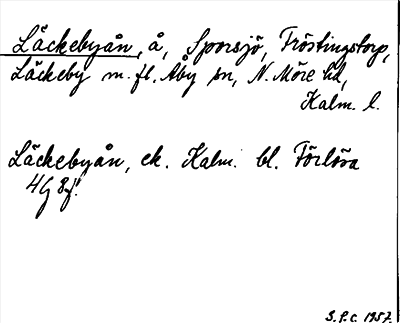 Läckebyån, å, Sporsjö, Tröstingstorp,
Läckeby m. fl. Åby sn, N. Möre hd,
Kalm. l.
Läckebyån, ek. Kalm. bl. Förlösa
4G 8f.
S.P.C. 1957.